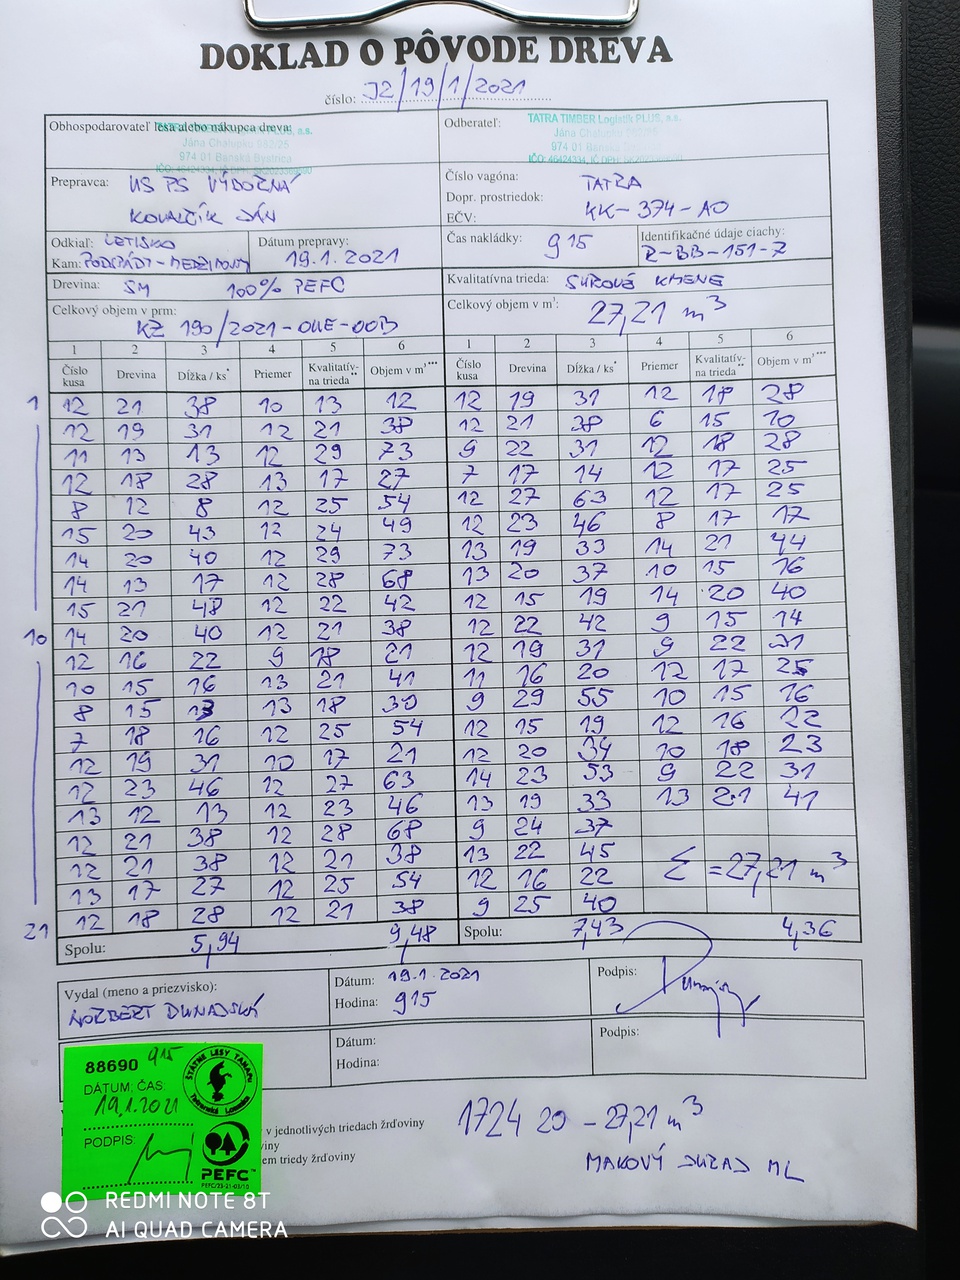 DOKLAD O PÔVODE DREVA
číslo: J2/19/1/2021
Obhospodarovateľ lesa alebo nákupca dreva:
974 01 Banská Bystrica
Odberateľ:
TATRA TIMBER Logistik PLUS, a.s.
974 01 Banská Bystrica
Prepravca: US PS VÝBORNÁ
KOVALČÍK JÁN
Číslo vagóna: TATRA
Dopr. prostriedok:
EČV: KK-374-AO
Odkiaľ: LETISKO
Kam: PODSPÁDY-MEDZIMOSTY
Dátum prepravy:
19.1.2021
Čas nakládky: 915
Identifikačné údaje ciachy:
R-BB-151-7
Drevina: SM 100% PEFC
Kvalitatívna trieda: SUROVÉ KMENE
Celkový objem v prm:
KZ 190/2021-OUE-OOB
Celkový objem v m³: 27,21 m³
1 2 3 4 5 6 1 2 3 4 5 6
Číslo kusa Drevina Dĺžka / ks* Priemer Kvalitatív-na trieda** Objem v m³*** Číslo kusa Drevina Dĺžka / ks* Priemer Kvalitatív-na trieda** Objem v m³***
1 12 21 38 10 13 12 12 19 31 12 18 28
12 19 31 12 21 38 12 21 38 6 15 10
11 13 13 12 29 73 9 22 31 12 18 28
12 18 28 13 17 27 7 17 14 12 17 25
8 12 8 12 25 54 12 27 63 12 17 25
15 20 43 12 24 49 12 23 46 8 17 17
14 20 40 12 29 73 13 19 33 14 21 44
14 13 17 12 28 68 13 20 37 10 15 16
15 21 48 12 22 42 12 15 19 14 20 40
10 14 20 40 12 21 38 12 22 42 9 15 14
12 16 22 9 18 21 12 19 31 9 22 31
10 15 16 13 21 41 11 16 20 12 17 25
8 15 13 13 18 30 9 29 55 10 15 16
7 18 16 12 25 54 12 15 19 12 16 22
12 19 31 10 17 21 12 20 34 10 18 23
12 23 46 12 27 63 14 23 53 9 22 31
13 12 13 12 23 46 13 19 33 13 21 41
12 21 38 12 28 68 9 24 37
12 21 38 12 21 38 13 22 45
13 17 27 12 25 54 12 16 22
Σ = 27,21 m³
21 12 18 28 12 21 38 9 25 40
Spolu: 5,94 9,48 Spolu: 7,43 4,36
Vydal (meno a priezvisko):
NORBERT DUNAJSKÝ
Dátum: 19.1.2021
Hodina: 915
Podpis:
Dátum:
Hodina:
Podpis:
88690 915
DÁTUM, ČAS:
19.1.2021
PODPIS:
ŠTÁTNE LESY TANAPU
Tatranská Lomnica
PEFC
PEFC/23-21-03/10
v jednotlivých triedach žrďoviny
viny
em triedy žrďoviny
1724 20 - 27,21 m³
MAKOVÝ
REDMI NOTE 8T
AI QUAD CAMERA